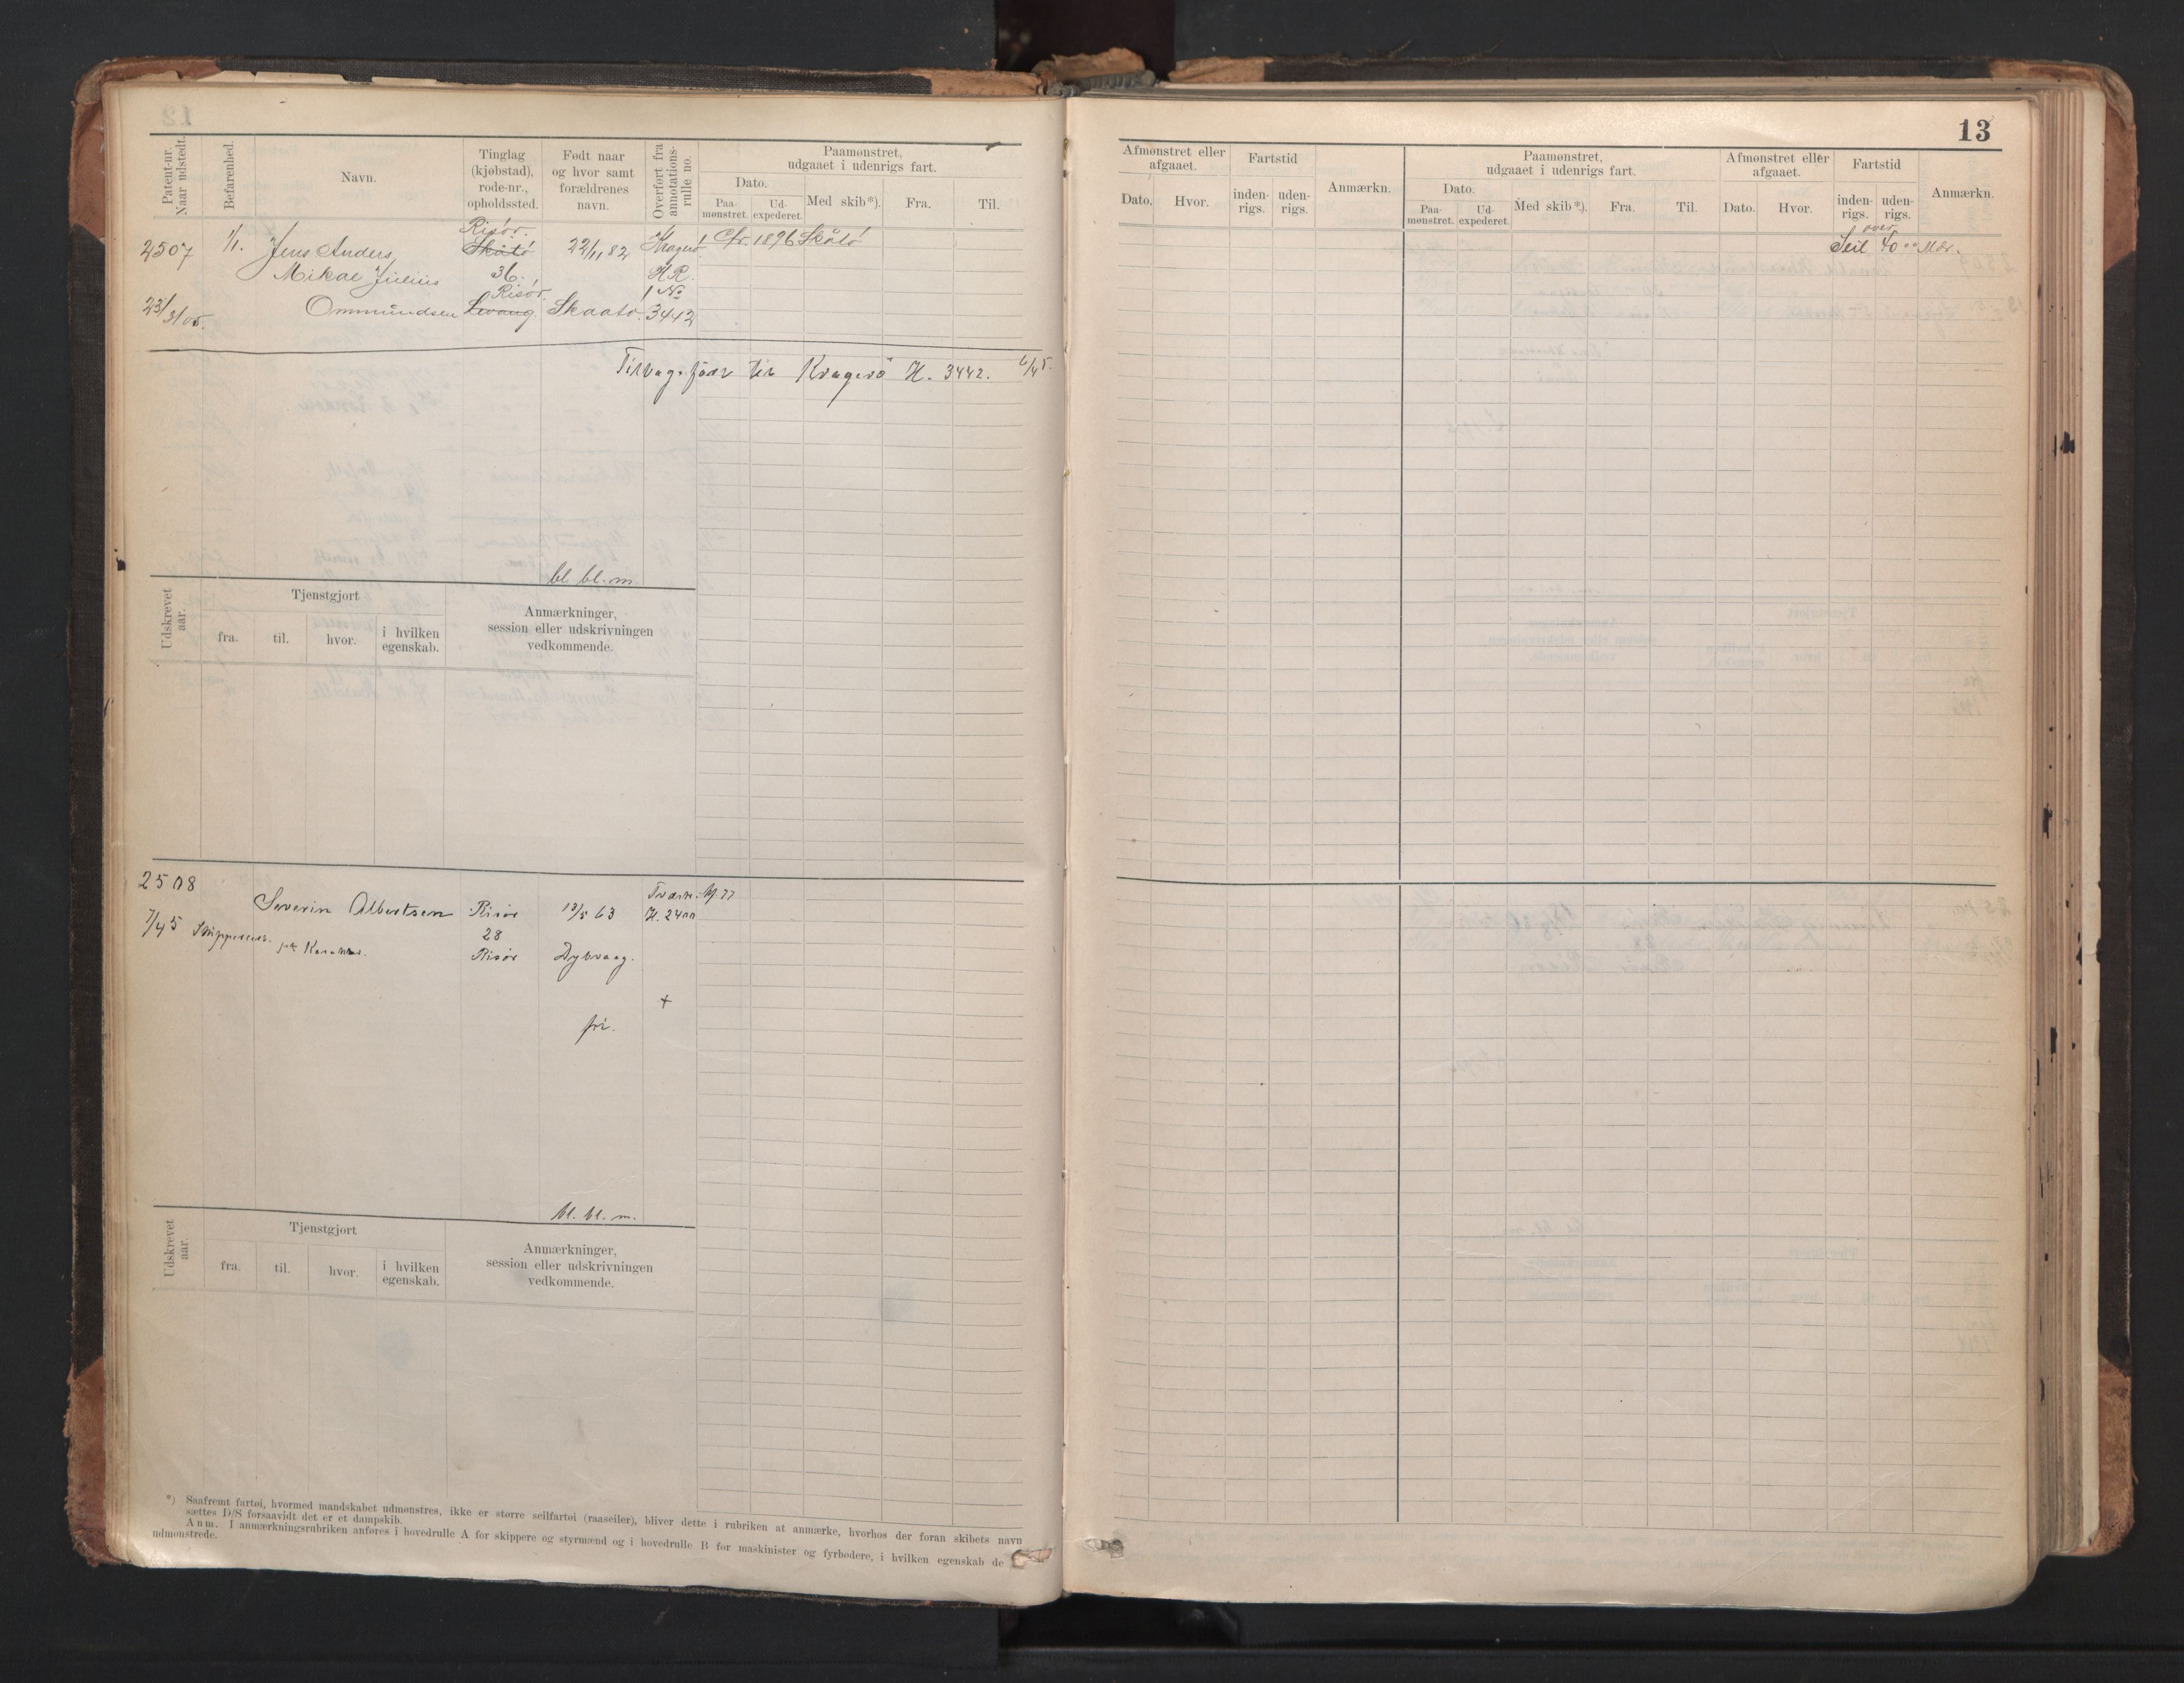 13
Patent-nr. Naar udstedt.
Befarenhed.
Navn.
Tinglag (kjøbstad), rode-nr., opholdssted.
Født naar og hvor samt forældrenes navn.
Overført fra annotations-rulle no.
Paamønstret, udgaaet i udenrigs fart.
Dato.
Paa-mønstret.
Ud-expederet.
Med skib*).
Fra.
Til.
2507
1/1.
Jens Anders
Mikal Julius
Ommundsen
23/3/05.
Risør.
Skåtø
36.
Risør.
Levang
22/11 82
Skaatø.
Kragerø
H.R.
No
3442
Cfr. 1896 Skåtø
Tilbagefört til Kragerö H. 3442. 6/4 5.
bl. bl. m.
Udskrevet aar.
Tjenstgjort
fra.
til.
hvor.
i hvilken egenskab.
Anmærkninger, session eller udskrivningen vedkommende.
2508
7/4 5
Severin Albertsen
Risør
28
Risør
13/5 63
Dybvaag.
fri.
H. 2400
+
bl. bl. m.
Udskrevet aar.
Tjenstgjort
fra.
til.
hvor.
i hvilken egenskab.
Anmærkninger, session eller udskrivningen vedkommende.
*) Saafremt fartøi, hvormed mandskabet udmønstres, ikke er større seilfartøi (raaseiler), bliver dette i rubriken at anmærke, hvorhos der foran skibets navn
sættes D/S forsaavidt det er et dampskib.
Anm. I anmærkningsrubriken anføres i hovedrulle A for skippere og styrmænd og i hovedrulle B for maskinister og fyrbødere, i hvilken egenskab de
udmønstrede.
Afmønstret eller afgaaet.
Dato.
Hvor.
Fartstid
inden-rigs.
uden-rigs.
Anmærkn.
Paamønstret, udgaaet i udenrigs fart.
Dato.
Paa-mønstret.
Ud-expederet.
Med skib*).
Fra.
Til.
Afmønstret eller afgaaet.
Dato.
Hvor.
Fartstid
inden-rigs.
uden-rigs.
Anmærkn.
over
Seil 40 Mdr.